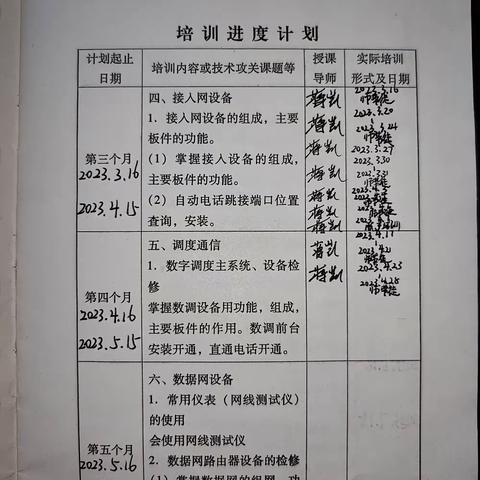 培训进度计划
计划起止
日期
培训内容或技术攻关课题等
授课
导师
实际培训
形式及日期
第三个月
2023.3.16
2023.4.15
四、接入网设备
1. 接入网设备的组成，主要
板件的功能。
(1) 掌握接入设备的组成，
主要板件的功能。
(2) 自动电话跳接端口位置
查询，安装。
蒋凯
蒋凯
蒋凯
蒋凯
蒋凯
蒋凯
蒋凯
2023.3.16
师带徒
2023.3.20
2023.3.24
师带徒
2023.3.27
2023.3.30
2023.3.31
师带徒
第四个月
2023.4.16
2023.5.15
五、调度通信
1. 数字调度主系统、设备检
修
掌握数调设备用功能，组成，
主要板件的作用。数调前台
安装开通，直通电话开通。
蒋凯
蒋凯
2023.4.17
2023.4.21
师带徒
2023.4.23
2023.4.28
师带徒
第五个月
2023.5.16
六、数据网设备
1. 常用仪表（网线测试仪）
的使用
会使用网线测试仪
2. 数据网路由器设备的检修
(1) 掌握数据网的组网，功